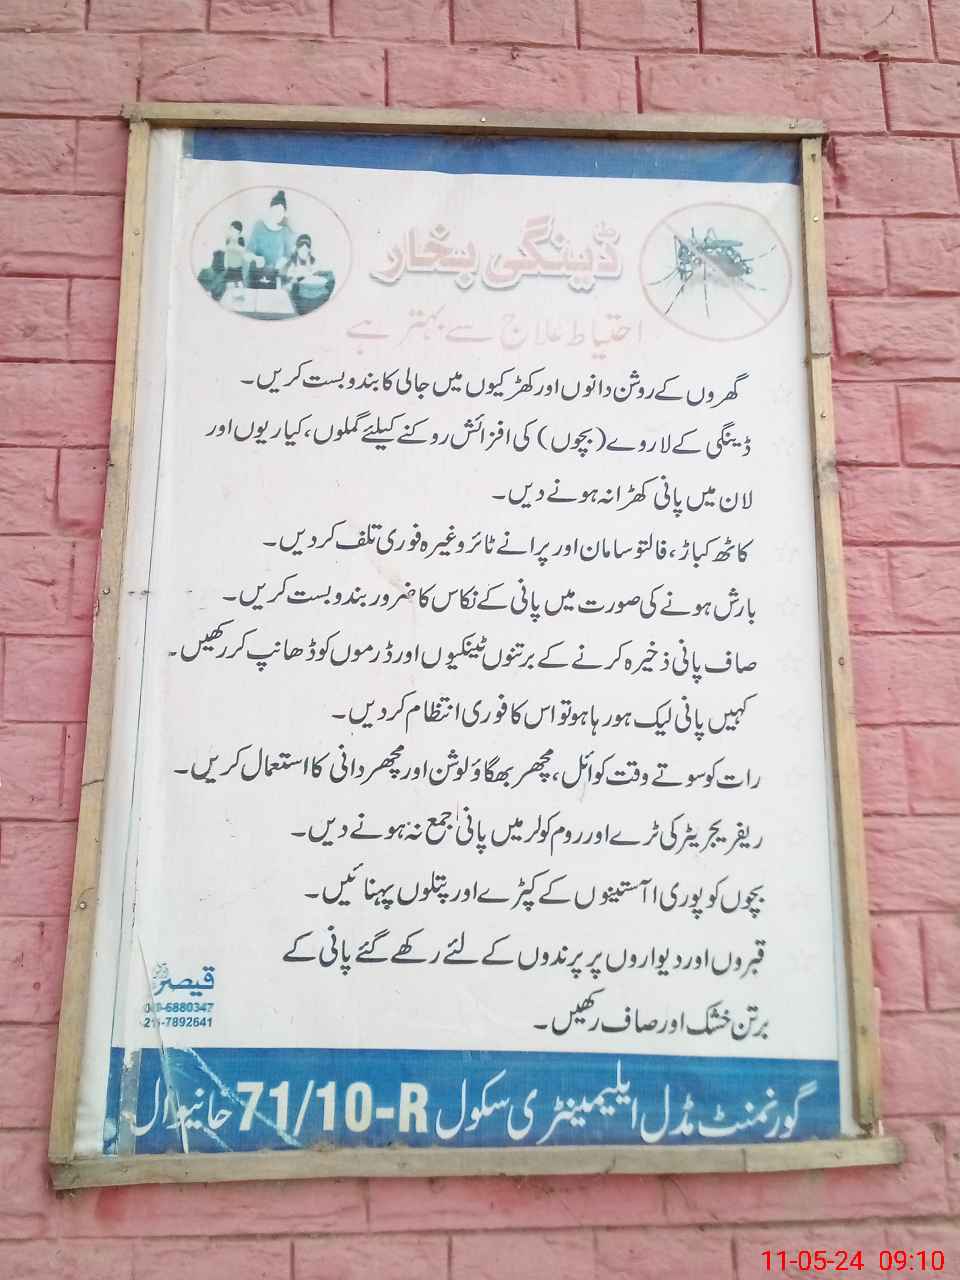 ڈینگی بخار
احتیاط علاج سے بہتر ہے
گھروں کے روشن دانوں اور کھڑکیوں میں جالی کا بندوبست کریں۔
ڈینگی کے لاروے (بچوں) کی افزائش روکنے کیلئے گملوں، کیاریوں اور
لان میں پانی کھڑا نہ ہونے دیں۔
کاٹھ کباڑ، فالتو سامان اور پرانے ٹائر وغیرہ فوری تلف کر دیں۔
بارش ہونے کی صورت میں پانی کے نکاس کا ضرور بندوبست کریں۔
صاف پانی ذخیرہ کرنے کے برتنوں ٹینکیوں اور ڈرموں کو ڈھانپ کر رکھیں۔
کہیں پانی لیک ہو رہا ہو تو اس کا فوری انتظام کر دیں۔
رات کو سوتے وقت کوائل، مچھر بھگاؤ لوشن اور مچھر دانی کا استعمال کریں۔
ریفریجریٹر کی ٹرے اور روم کولر میں پانی جمع نہ ہونے دیں۔
بچوں کو پوری اآستینوں کے کپڑے اور پتلوں پہنائیں۔
قبروں اور دیواروں پر پرندوں کے لئے رکھے گئے پانی کے
برتن خشک اور صاف رکھیں۔
قیصر
6880347
7892641
گورنمنٹ مڈل ایلیمینٹری سکول 71/10-R خانیوال
11-05-24 09:10